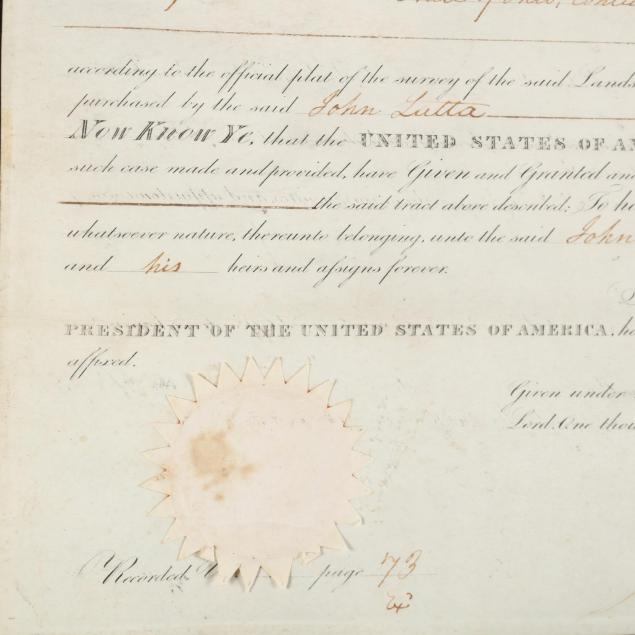 State of Ohio,
according to the official plat of the survey of the said Lands
purchased by the said John Lutta
Now Know Ye, that the UNITED STATES OF AM
such case made and provided, have Given and Granted and
the said tract above described; To ha
whatsoever nature, thereunto belonging, unto the said John
and his heirs and assigns forever.
PRESIDENT OF THE UNITED STATES OF AMERICA, ha
affixed.
Given under
Lord One thou
Recorded page 73